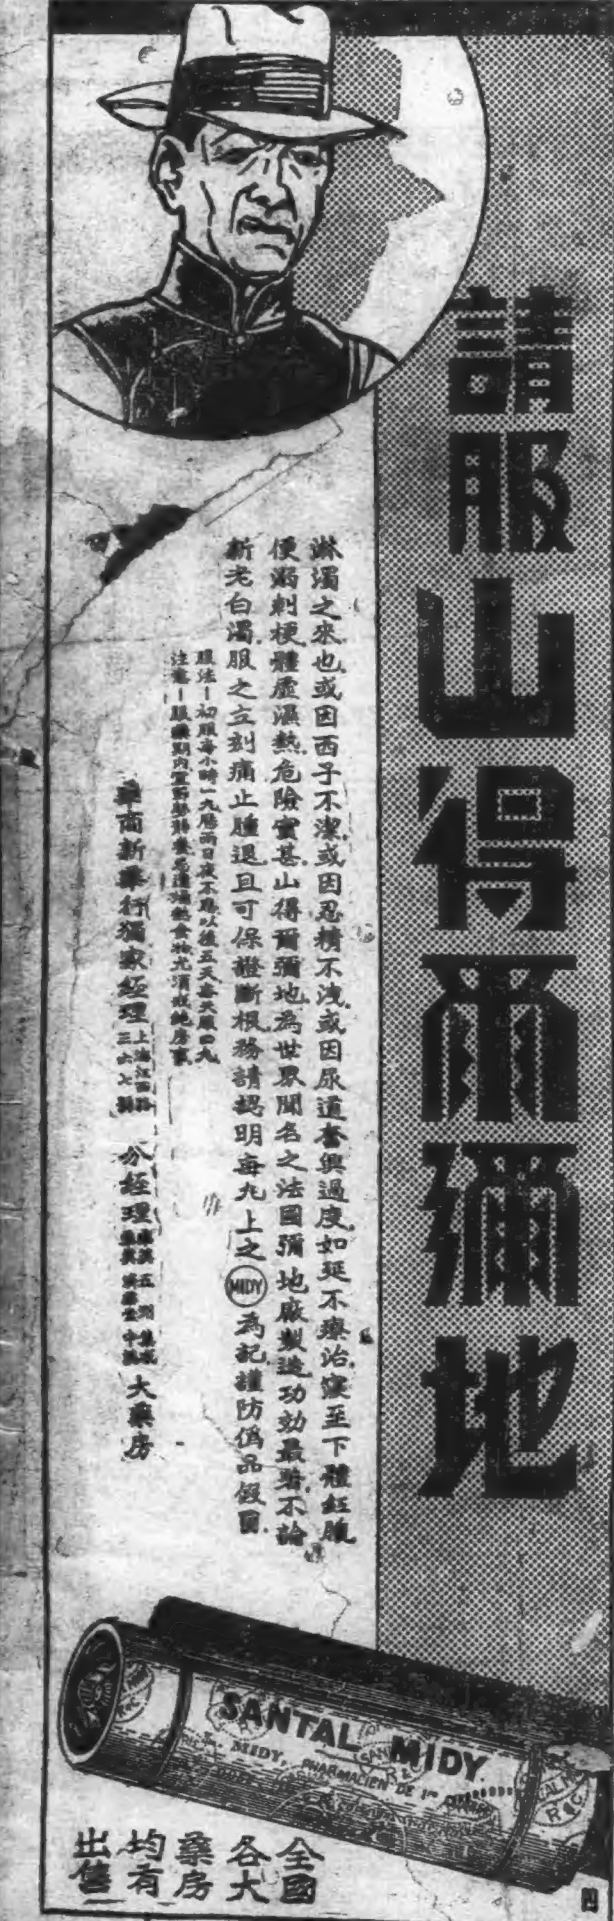 請服山得爾彌地
淋濁之來也或因西子不潔或因忍精不洩或因尿道奮興過度如延不療治寖至下體紅腫
便溺刺梗體虛濕熱危險實甚山得爾彌地為世界聞名之法國彌地廠製造功効最著不論
新老白濁服之立刻痛止腫退且可保證斷根務請認明每丸上之MIDY為記謹防偽品假冒
服法－初服每小時一丸歷兩日夜不息以後五天每天服四丸
注意－服藥期內宜節
華商新華行獨家經理 上海江西路 三六七號 分經理 五洲 中法 大藥房
SANTAL MIDY
MIDY, PHARMACIEN DE 1re
全國各大藥房均有出售
四